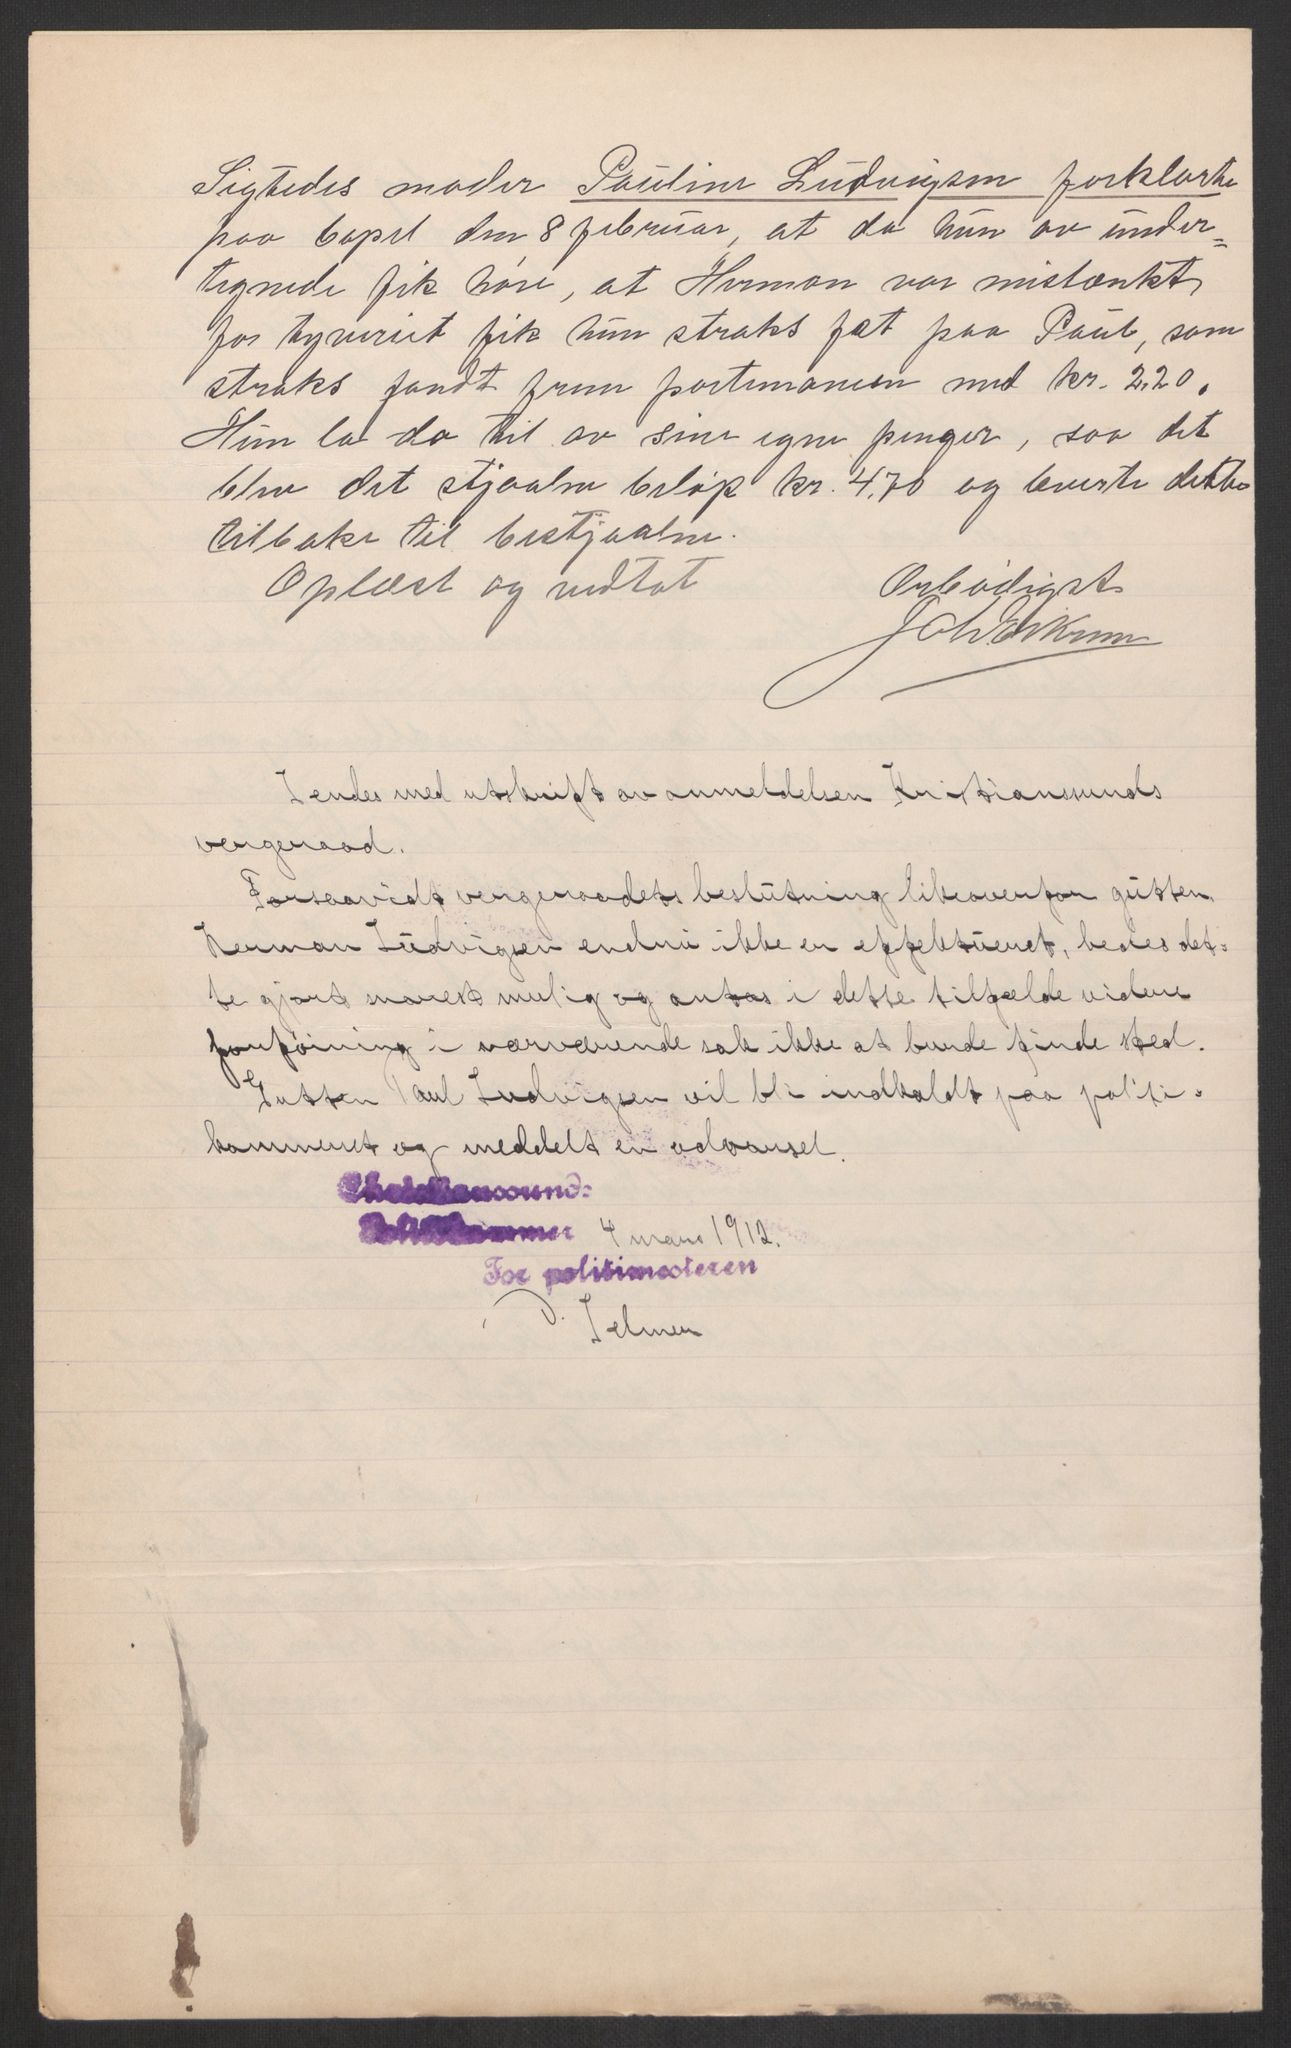 Sigtedes moder Pauline Ludvigsen forklarte
paa bopel den 8 februar, at da hun av under=
tegnede fik høre, at Herman var mistænkt
for tyveriet fik hun straks fat paa Paul, som
straks fandt frem portemonæen med kr. 2,20.
Hun la da til av sine egne penger, saa det
blev det stjaalne beløp kr. 4,70 og leverte dette
tilbake til bestjaalne.
Oplæst og vedtat
Ærbødigst
Sendes med utskrift av anmeldelsen Kristianssunds
vergeraad.
Forsaavidt vergeraadets beslutning likeoverfor gutten
Herman Ludvigsen endnu ikke er effektueret, bedes det-
te gjort snarest mulig og antas i dette tilfælde videre
forføining i nærværende sak ikke at burde finde sted.
Gutten Paul Ludvigsen vil bli indkaldt paa politi-
kammeret og meddelt en advarsel.
Christianssunds
Politikammer 4 mars 1912.
For politimesteren